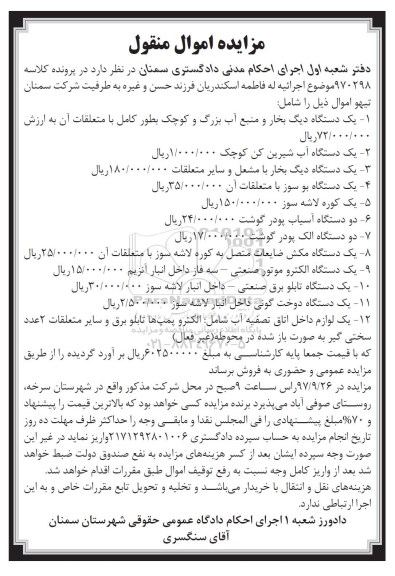 مزایده اموال منقول
دفتر شعبه اول اجرای احکام مدنی دادگستری سمنان در نظر دارد در پرونده کلاسه
۹۷۰۲۹۸موضوع اجرائیه له فاطمه اسکندریان فرزند حسن و غیره به طرفیت شرکت سمنان
تیهو اموال ذیل را شامل:
۱- یک دستگاه دیگ بخار و منبع آب بزرگ و کوچک بطور کامل با متعلقات آن به ارزش
۷۲/۰۰۰/۰۰۰ریال
۲- یک دستگاه آب شیرین کن کوچک ۱/۰۰۰/۰۰۰ریال
۳- یک دستگاه دیگ بخار با مشعل و سایر متعلقات ۱۸۰/۰۰۰/۰۰۰ریال
۴- یک دستگاه بو سوز با متعلقات آن ۳۵/۰۰۰/۰۰۰ریال
۵- یک کوره لاشه سوز ۱۵۰/۰۰۰/۰۰۰ریال
۶- دو دستگاه آسیاب پودر گوشت ۲۴/۰۰۰/۰۰۰ریال
۷- دو دستگاه الک پودر گوشت ۱۷/۰۰۰/۰۰۰ریال
۸- یک دستگاه مکش ضایعات متصل به کوره لاشه سوز با متعلقات آن ۲۵/۰۰۰/۰۰۰ریال
۹- یک دستگاه الکترو موتور صنعتی – سه فاز داخل انبار آنزیم ۱۵/۰۰۰/۰۰۰ریال
۱۰- یک دستگاه تابلو برق صنعتی – داخل انبار لاشه سوز ۳۰/۰۰۰/۰۰۰ریال
۱۱- یک دستگاه دوخت گونی داخل انبار لاشه سوز ۲/۵۰۰/۰۰۰ریال
۱۲- یک لوازم داخل اتاق تصفیه آب شامل: الکترو پمپ‌ها تابلو برق و سایر متعلقات ۲عدد
سختی گیر به صورت باز شده در محوطه(غیر فعال)
که با قیمت جمعا پایه کارشناسی به مبلغ ۶۰۲۵۰۰۰۰۰ریال بر آورد گردیده را از طریق
مزایده عمومی و حضوری به فروش برساند
مزایده در ۹۷/۹/۲۶راس ساعت ۹صبح در محل شرکت مذکور واقع در شهرستان سرخه،
روستای صوفی آباد می‌پذیرد برنده مزایده کسی خواهد بود که بالاترین قیمت را پیشنهاد
و ۷۰%مبلغ پیشنهادی را فی المجلس نقدا و مابقی وجه را حداکثر ظرف مهلت ده روز
تاریخ انجام مزایده به حساب سپرده دادگستری ۲۱۷۱۲۹۲۸۰۱۰۰۶واریز نماید در غیر این
صورت وجه سپرده ایشان بعد از کسر هزینه‌های مزایده به نفع صندوق دولت ضبط خواهد
شد بعد از واریز کامل وجه نسبت به رفع توقیف اموال طبق مقررات اقدام خواهد شد.
هزینه‌های نقل و انتقال با خریدار می‌باشد و تخلیه و تحویل تابع مقررات خاص و به این
اجرا ارتباطی ندارد.
دادورز شعبه ۱ اجرای احکام دادگاه عمومی حقوقی شهرستان سمنان
آقای سنگسری